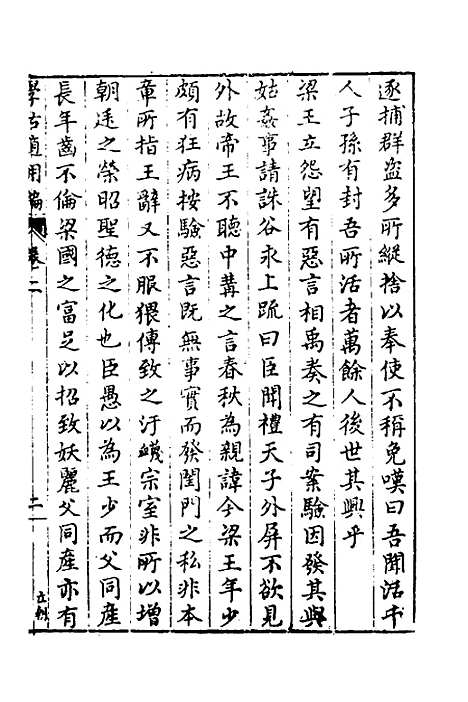 逐捕群盗多所縱捨以奉使不稱免嘆曰吾聞活千
人子孫有封吾所活者萬餘人後世其興乎
梁王立怨望有惡言相禹奏之有司案驗因發其與
姑姦事請誅谷永上疏曰臣聞禮天子外屏不欲見
外故帝王不聽中冓之言春秋為親諱今梁王年少
頗有狂病按驗惡言既無事實而發閨門之私非本
章所指王辭又不服猥傳致之汙衊宗室非所以增
朝廷之榮昭聖德之化也臣愚以為王少而父同產
長年齒不倫梁國之富足以招致妖麗父同產亦有
學古適用編 卷二 二